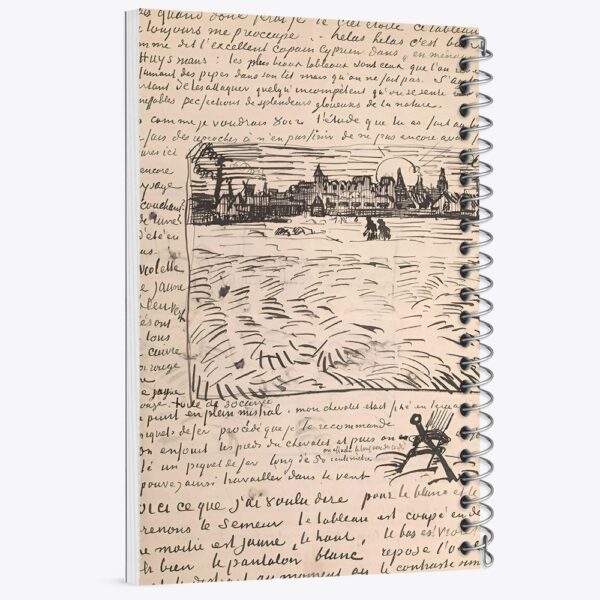 quand donc ferai je le ciel étoilé ce tableau
toujours me préoccupe .. hélas hélas c'est bien
mme dit l'excellent copain Cyprien dans „en ménage
Huysmans: les plus beaux tableaux sont ceux que l'on
fumant des pipes dans son lit mais qu'on ne fait pas. S'a
de les attaquer quelqu'incompétent qu'on se sente
ineffables perfections de splendeurs glorieuses de la nature.
comme je voudrais voir l'étude que tu as fait au bo
fais des reproches à n'en pas finir de ne pas encore avoir
ures ici
encore
ysage
couchant
d'été en
violette
jaune
bleu vert
sont
tous
cuivre
rouge
jaune
toile de 30 carrée
peint en plein mistral. mon chevalet était fixé en terre a
piquets de fer procédé que je te recommande
on enfouit les pieds du chevalet et puis on
té un piquet de fer long de 50 centimètre
on attache le tout avec des cordes
pouvez ainsi travailler dans le vent
oici ce que j'ai voulu dire pour le blanc et le
renons le Semeur le tableau est coupé en de
e moitié est jaune, le haut, le bas est vio
h bien le pantalon blanc repose l'oe
au moment où le contraste sim